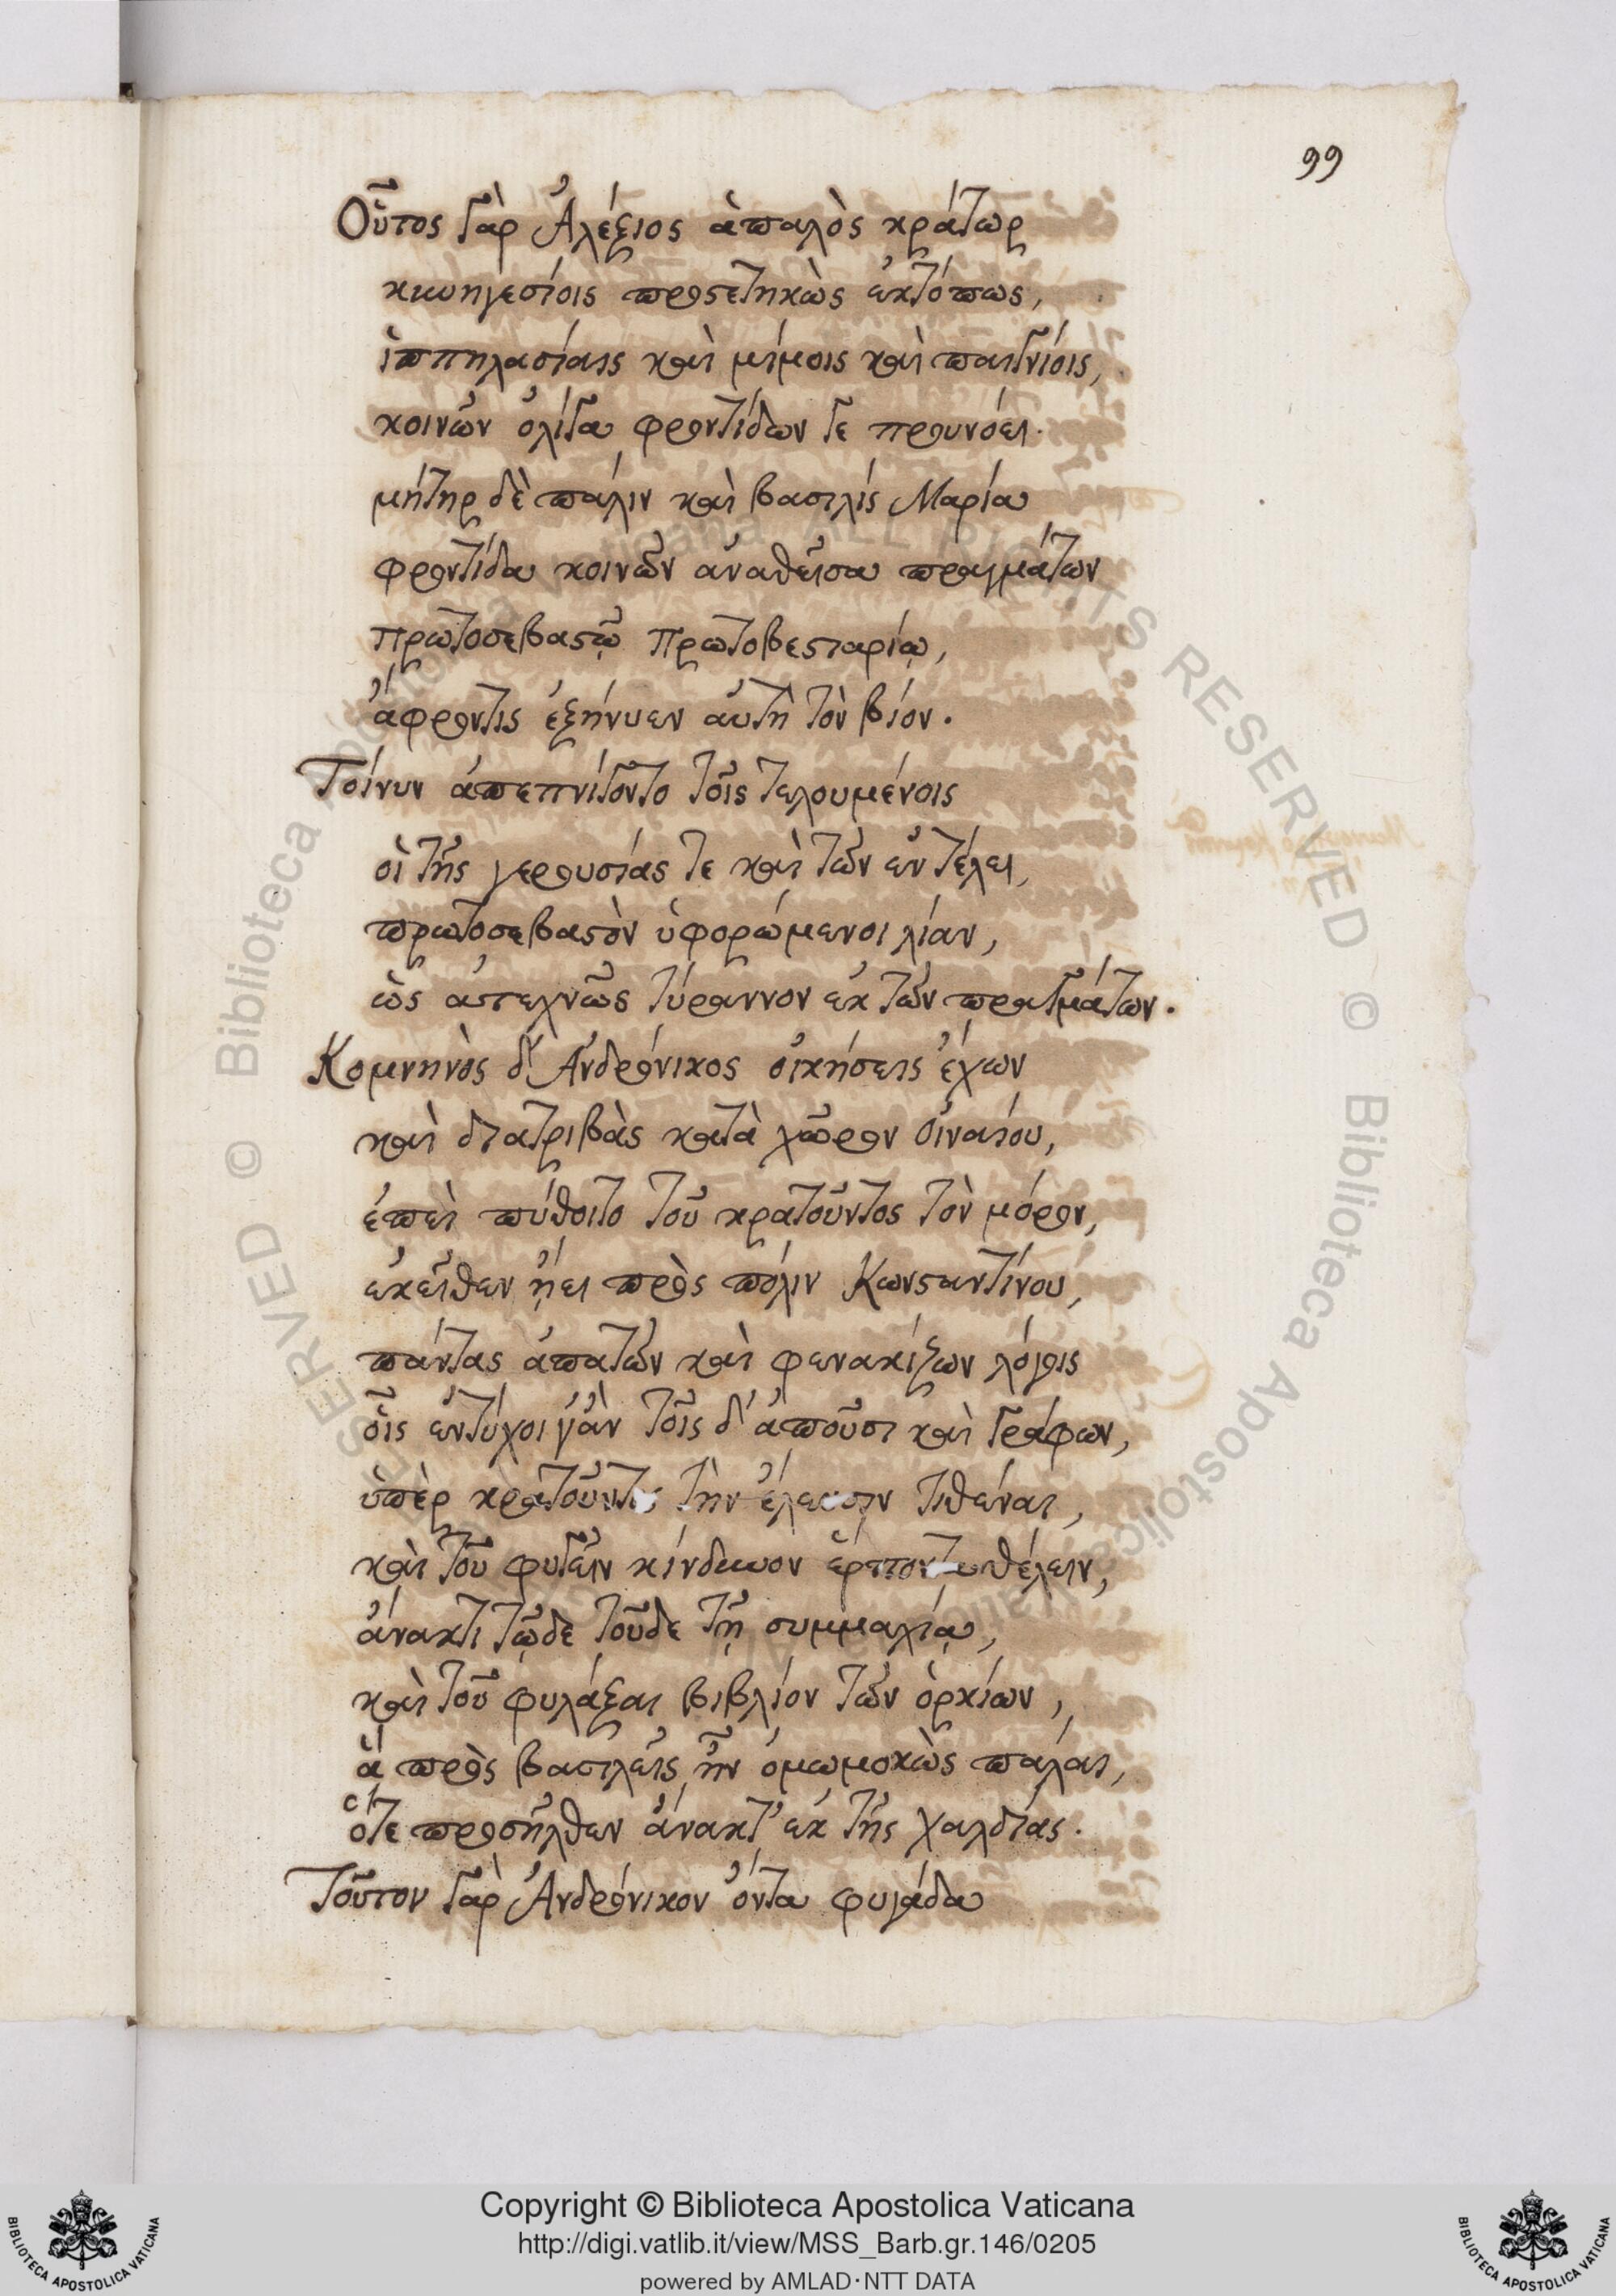 99
Οὗτος γὰρ Ἀλέξιος ἁπαλὸς κράτωρ
κυνηγεσίοις προστετηκὼς ἐκτόπως,
ἱππηλασίαις καὶ μίμοις καὶ παιγνίοις,
κοινῶν ὀλίγα φροντίδων γε προυνόει.
μήτηρ δὲ πάλιν καὶ βασιλὶς Μαρία
φροντίδα κοινῶν ἀναθεῖσα πραγμάτων
πρωτοσεβαστῷ πρωτοβεσταρίῳ,
ἄφροντις ἐξήνυεν αὐτὴ τὸν βίον.
Τοίνυν ἀπεπνίγοντο τοῖς τελουμένοις
οἱ τῆς γερουσίας τε καὶ τῶν ἐν τέλει,
πρωτοσεβαστὸν ὑφορώμενοι λίαν,
ὡς ἀτεχνῶς τύραννον ἐκ τῶν πραγμάτων.
Κομνηνὸς δ' Ἀνδρόνικος οἰκήσεις ἔχων
καὶ διατριβὰς κατὰ χῶρον Οἰναίου,
ἐπεὶ πύθοιτο τοῦ κρατοῦντος τὸν μόρον,
ἐκεῖθεν ᾔει πρὸς πόλιν Κωνσταντίνου,
πάντας ἀπατῶν καὶ φενακίζων λόγοις
οἷς ἐντύχοι γ' ἂν τοῖς δ' ἀποῦσι καὶ γράφων,
ὑπὲρ κρατοῦντος τὴν ἔλευσιν τιθέναι,
καὶ τοῦ φυγεῖν κίνδυνον θέλειν,
ἄνακτι τῷδε τοῦδε τῇ συμμαχίᾳ,
καὶ τοῦ φυλάξαι βιβλίον τῶν ὁρκίων,
ἃ πρὸς βασιλεῖς ἦν ὀμωμοκὼς πάλαι,
ὅτε προσῆλθεν ἄνακτ' ἐκ τῆς Χαλδίας.
Τοῦτον γὰρ Ἀνδρόνικον ὄντα φυγάδα
Copyright © Biblioteca Apostolica Vaticana
http://digi.vatlib.it/view/MSS_Barb.gr.146/0205
powered by AMLAD·NTT DATA